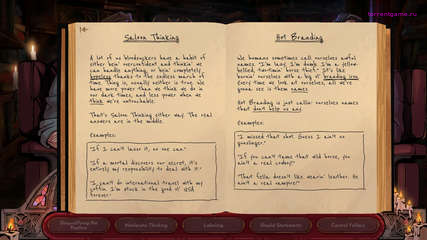 fierrangame.ru
Saloon Thinking
A lot of us blooduckers have a habit of
either bein' overconfident and thinkin' we
can handle anything, or bein' completely
hopeless thanks to the endless march of
time. Thing is, usually neither is true. We
have more power than we think we do in
our dark times, and less power when we
think we're untouchable.
That's Saloon Thinking either way. The real
answers are in the middle.
Examples:
"If I can't lasso it, no one can."
"If a mortal discovers our secret, it's
entirely my responsibility to deal with it."
"I can't do international travel with my
coffin. I'm stuck in the good ol' USA
forever."
Hot Branding
We humans sometimes call ourselves awful
names. "I'm lazy, I'm dumb, I'm a yellow-
bellied, two-timin' horse thief." It's like
burnin' ourselves with a big ol' branding iron
Every time we look at ourselves, all we're
gonna see is them names.
Hot Branding is just callin' ourselves names
that don't help us any.
Examples:
"I missed that shot. Guess I ain't no
gunslinger."
"If you can't tame that wild horse, you
ain't a real cowboy."
"That fella doesn't like wearin' leather. He
ain't a real vampire!"
Moderate Thinking
Labeling
Should Statements
Control Fallacy